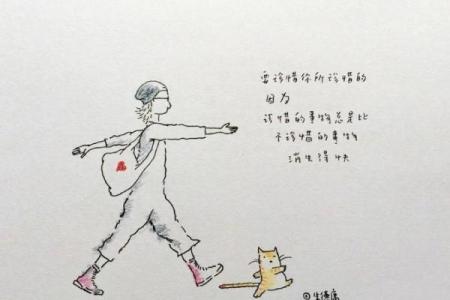 要珍惜你所珍惜的
因为
珍惜的事物总是比
不珍惜的事物
消失得快